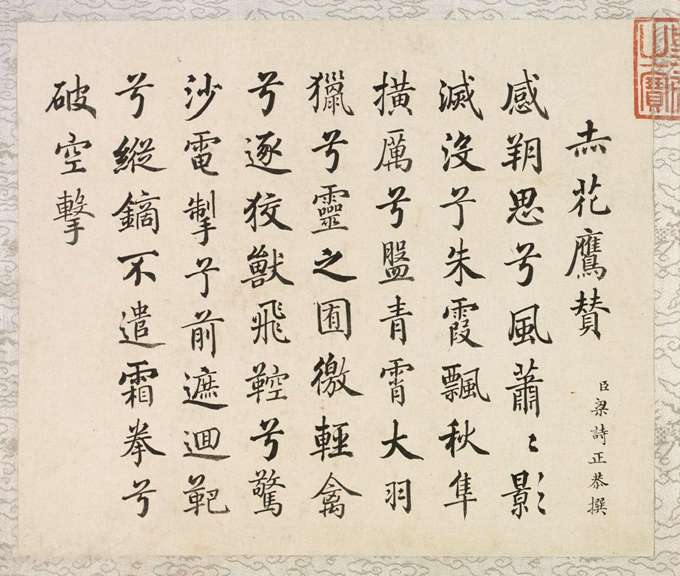 赤花鷹賛
臣梁詩正恭撰
感朔思兮風蕭〻影
滅沒兮朱霞飄秋隼
撗厲兮盤青霄大羽
獵兮靈之囿徼輕禽
兮逐狡獸飛鞚兮驚
沙電掣兮前遮迴靶
兮縱鏑不遣霜拳兮
破空擊
之寶